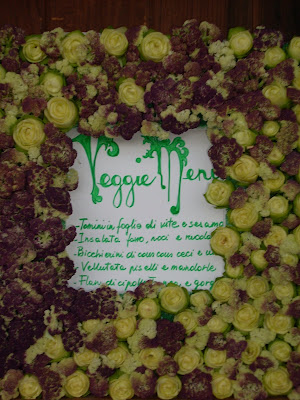 Veggie Menu
- Tomini in foglia di vite e sesamo
- Insalata farro, noci e rucola
- Bicchierini di cous cous ceci e
- Vellutata piselli e mandorle
- Flan di cipolle e